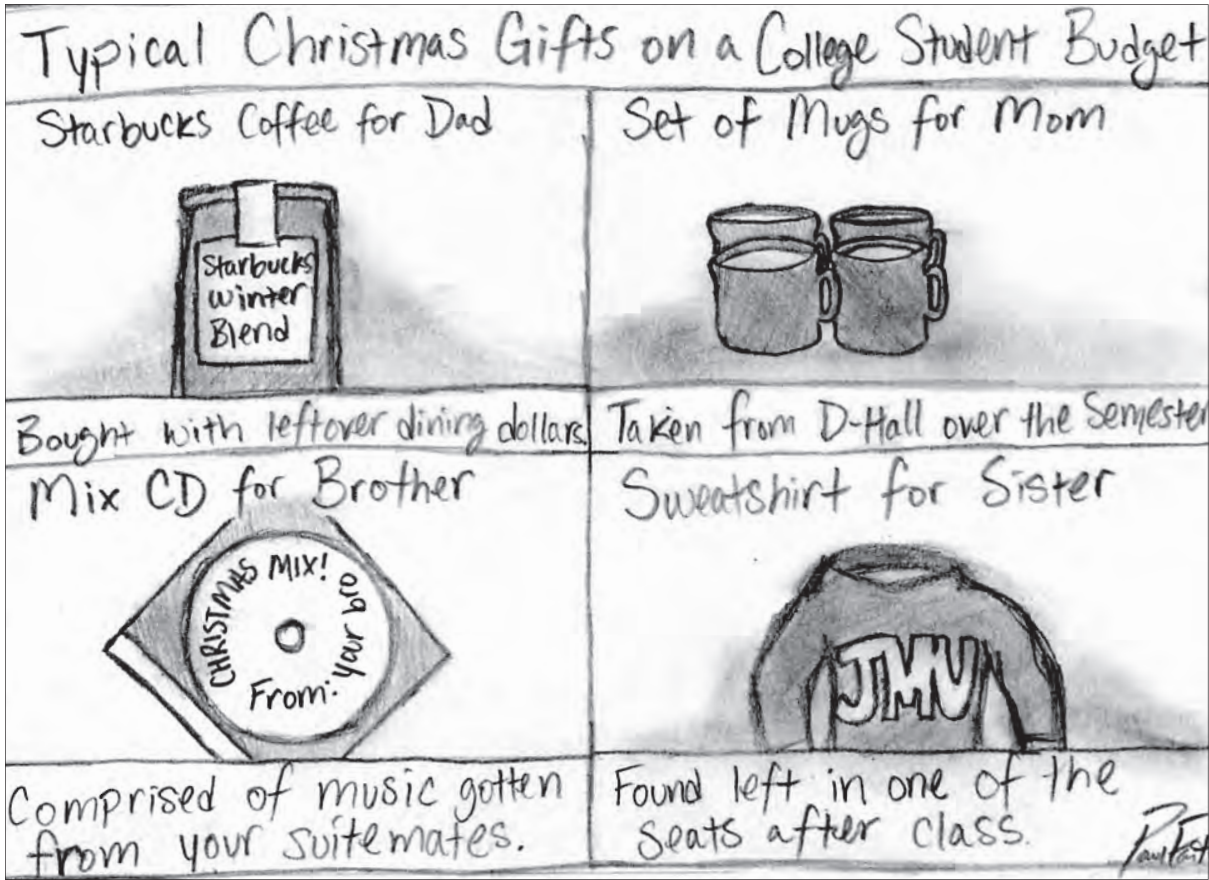 Typical Christmas Gifts on a College Student Budget
Starbucks Coffee for Dad
Starbucks
Winter
Blend
Bought with leftover dining dollars.
Set of Mugs for Mom
Taken from D-Hall over the Semester
Mix CD for Brother
CHRISTMAS MIX!
From: your bro
Comprised of music gotten
from your suitemates.
Sweatshirt for Sister
JMU
Found left in one of the
seats after class.